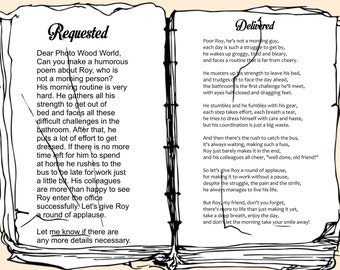 Requested
Dear Photo Wood World,
Can you make a humorous
poem about Roy, who is
not a morning person?
His morning routine is very
hard. He gathers all his
strength to get out of
bed and faces all these
difficult challenges in the
bathroom. After that, he
puts a lot of effort to get
dressed. If there is no more
time left for him to spend
at home he rushes to the
bus to be late for work just
a little bit. His colleagues
are more than happy to see
Roy enter the office
successfully. Let's give Roy
a round of applause.
Let me know if there are
any more details necessary.
Delivered
Poor Roy, he's not a morning guy,
each day is such a struggle to get by,
he wakes up groggy, tired and bleary,
and faces a routine that is far from cheery.
He musters up his strength to leave his bed,
and trudges off to face the day ahead,
the bathroom is the first challenge he'll meet,
with eyes half closed and dragging feet.
He stumbles and he fumbles with his gear,
each step takes effort, each breath a tear,
he tries to dress himself with care and haste,
but his coordination is just a big waste.
And then there's the rush to catch the bus,
it's always waiting, making such a fuss,
Roy just barely makes it in the end,
and his colleagues all cheer, "well done, old friend!"
So let's give Roy a round of applause,
for making it to work without a pause,
despite the struggle, the pain and the strife,
he always manages to live his life.
But Roy my friend, don't you forget,
there's more to life than just making it yet,
take a deep breath, enjoy the day,
and don't let the morning take your smile away!